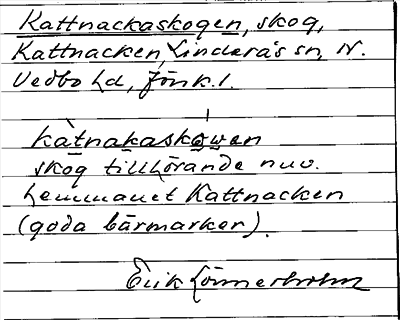 Kattnackaskogen, skog,
Kattnacken, Linderås sn, N.
Vedbo hd, Jönk. l.
kàtnakaskọwen
skog tillhörande nuv.
hemmanet Kattnacken
(goda bärmarker).
Erik Lönnerholm